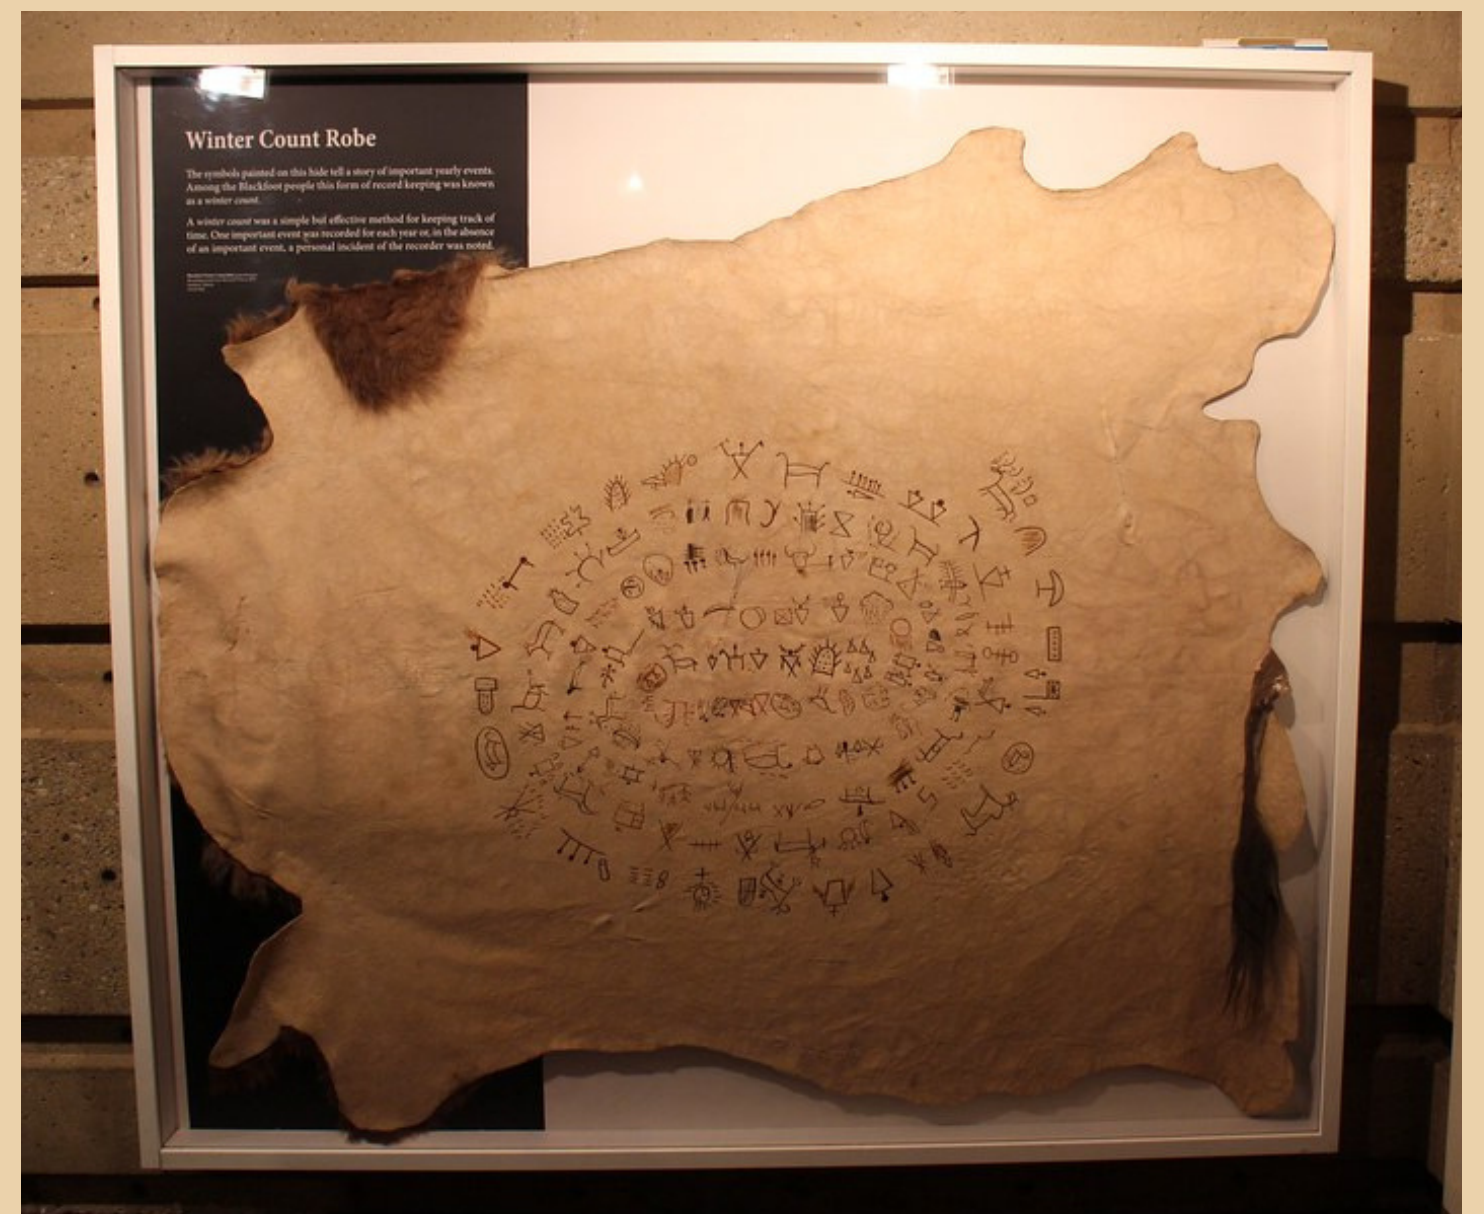 Winter Count Robe
The symbols painted on this hide tell a story of important yearly events.
Among the Blackfoot people this form of record keeping was known
as a winter count.
A winter count was a simple but effective method for keeping track of
time. One important event was recorded for each year or, in the absence
of an important event, a personal incident of the recorder was noted.